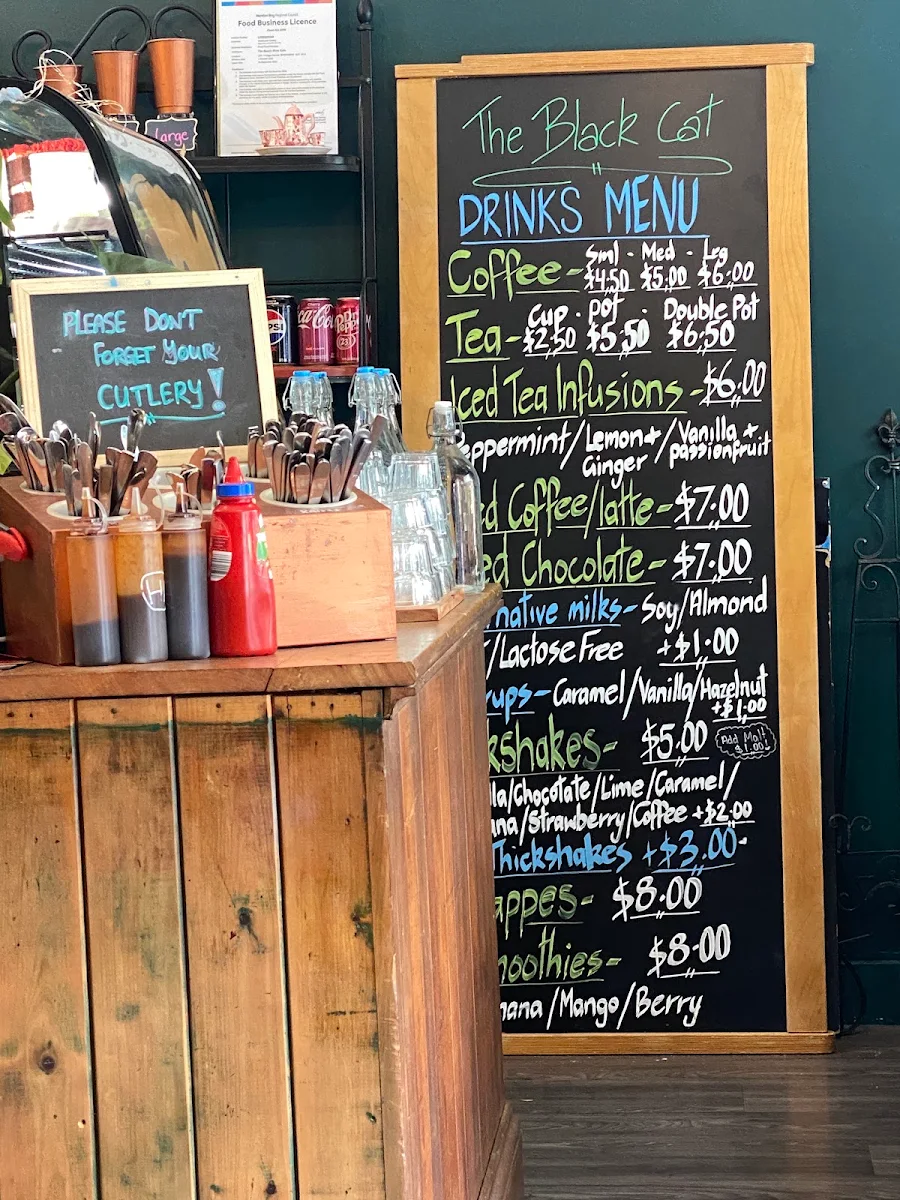 Food Business Licence
Large
The Black Cat
DRINKS MENU
Sml - Med - Lrg
Coffee - $4.50 $5.00 $6.00
Cup - Pot - Double Pot
Tea - $2.50 $5.50 $6.50
Iced Tea Infusions - $6.00
eppermint/Lemon+/Vanilla +
Ginger/passionfruit
ed Coffee/latte - $7.00
ed Chocolate - $7.00
native milks - Soy/Almond
/Lactose Free +$1.00
ups - Caramel/Vanilla/Hazelnut
+$1.00
kshakes - $5.00
Add Malt
$1.00!
la/Chocolate/Lime/Caramel/
ana/Strawberry/Coffee +$2.00
Thickshakes +$3.00
appes - $8.00
moothies - $8.00
nana/Mango/Berry
PLEASE DONT
FORGET YOUR
CUTLERY!
PSI
Coca-Cola
Dr Pepper
23